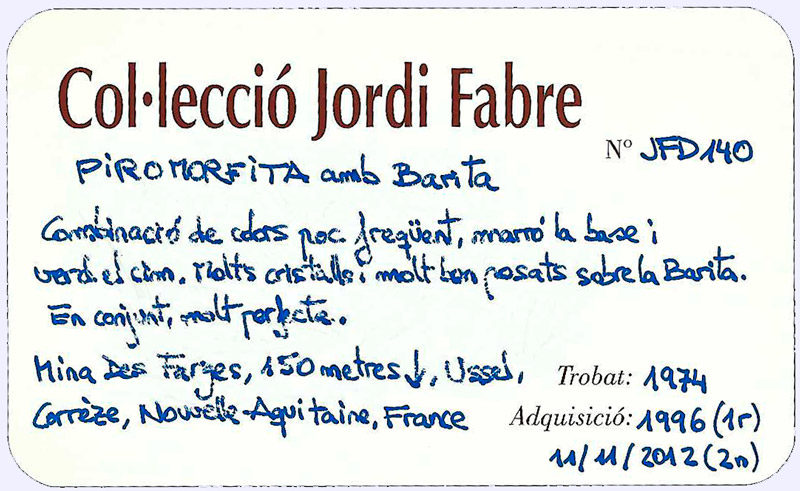 Col·lecció Jordi Fabre
Nº JFD140
PIROMORFITA amb Barita
Combinació de colors poc freqüent, marró la base i
verd el cim. Molts cristalls i molt ben posats sobre la Barita.
En conjunt, molt perfecte.
Mina Des Farges, 150 metres ↓, Ussel,
Corrèze, Nouvelle-Aquitaine, France
Trobat: 1974
Adquisició: 1996 (1r)
11/11/2012 (2n)